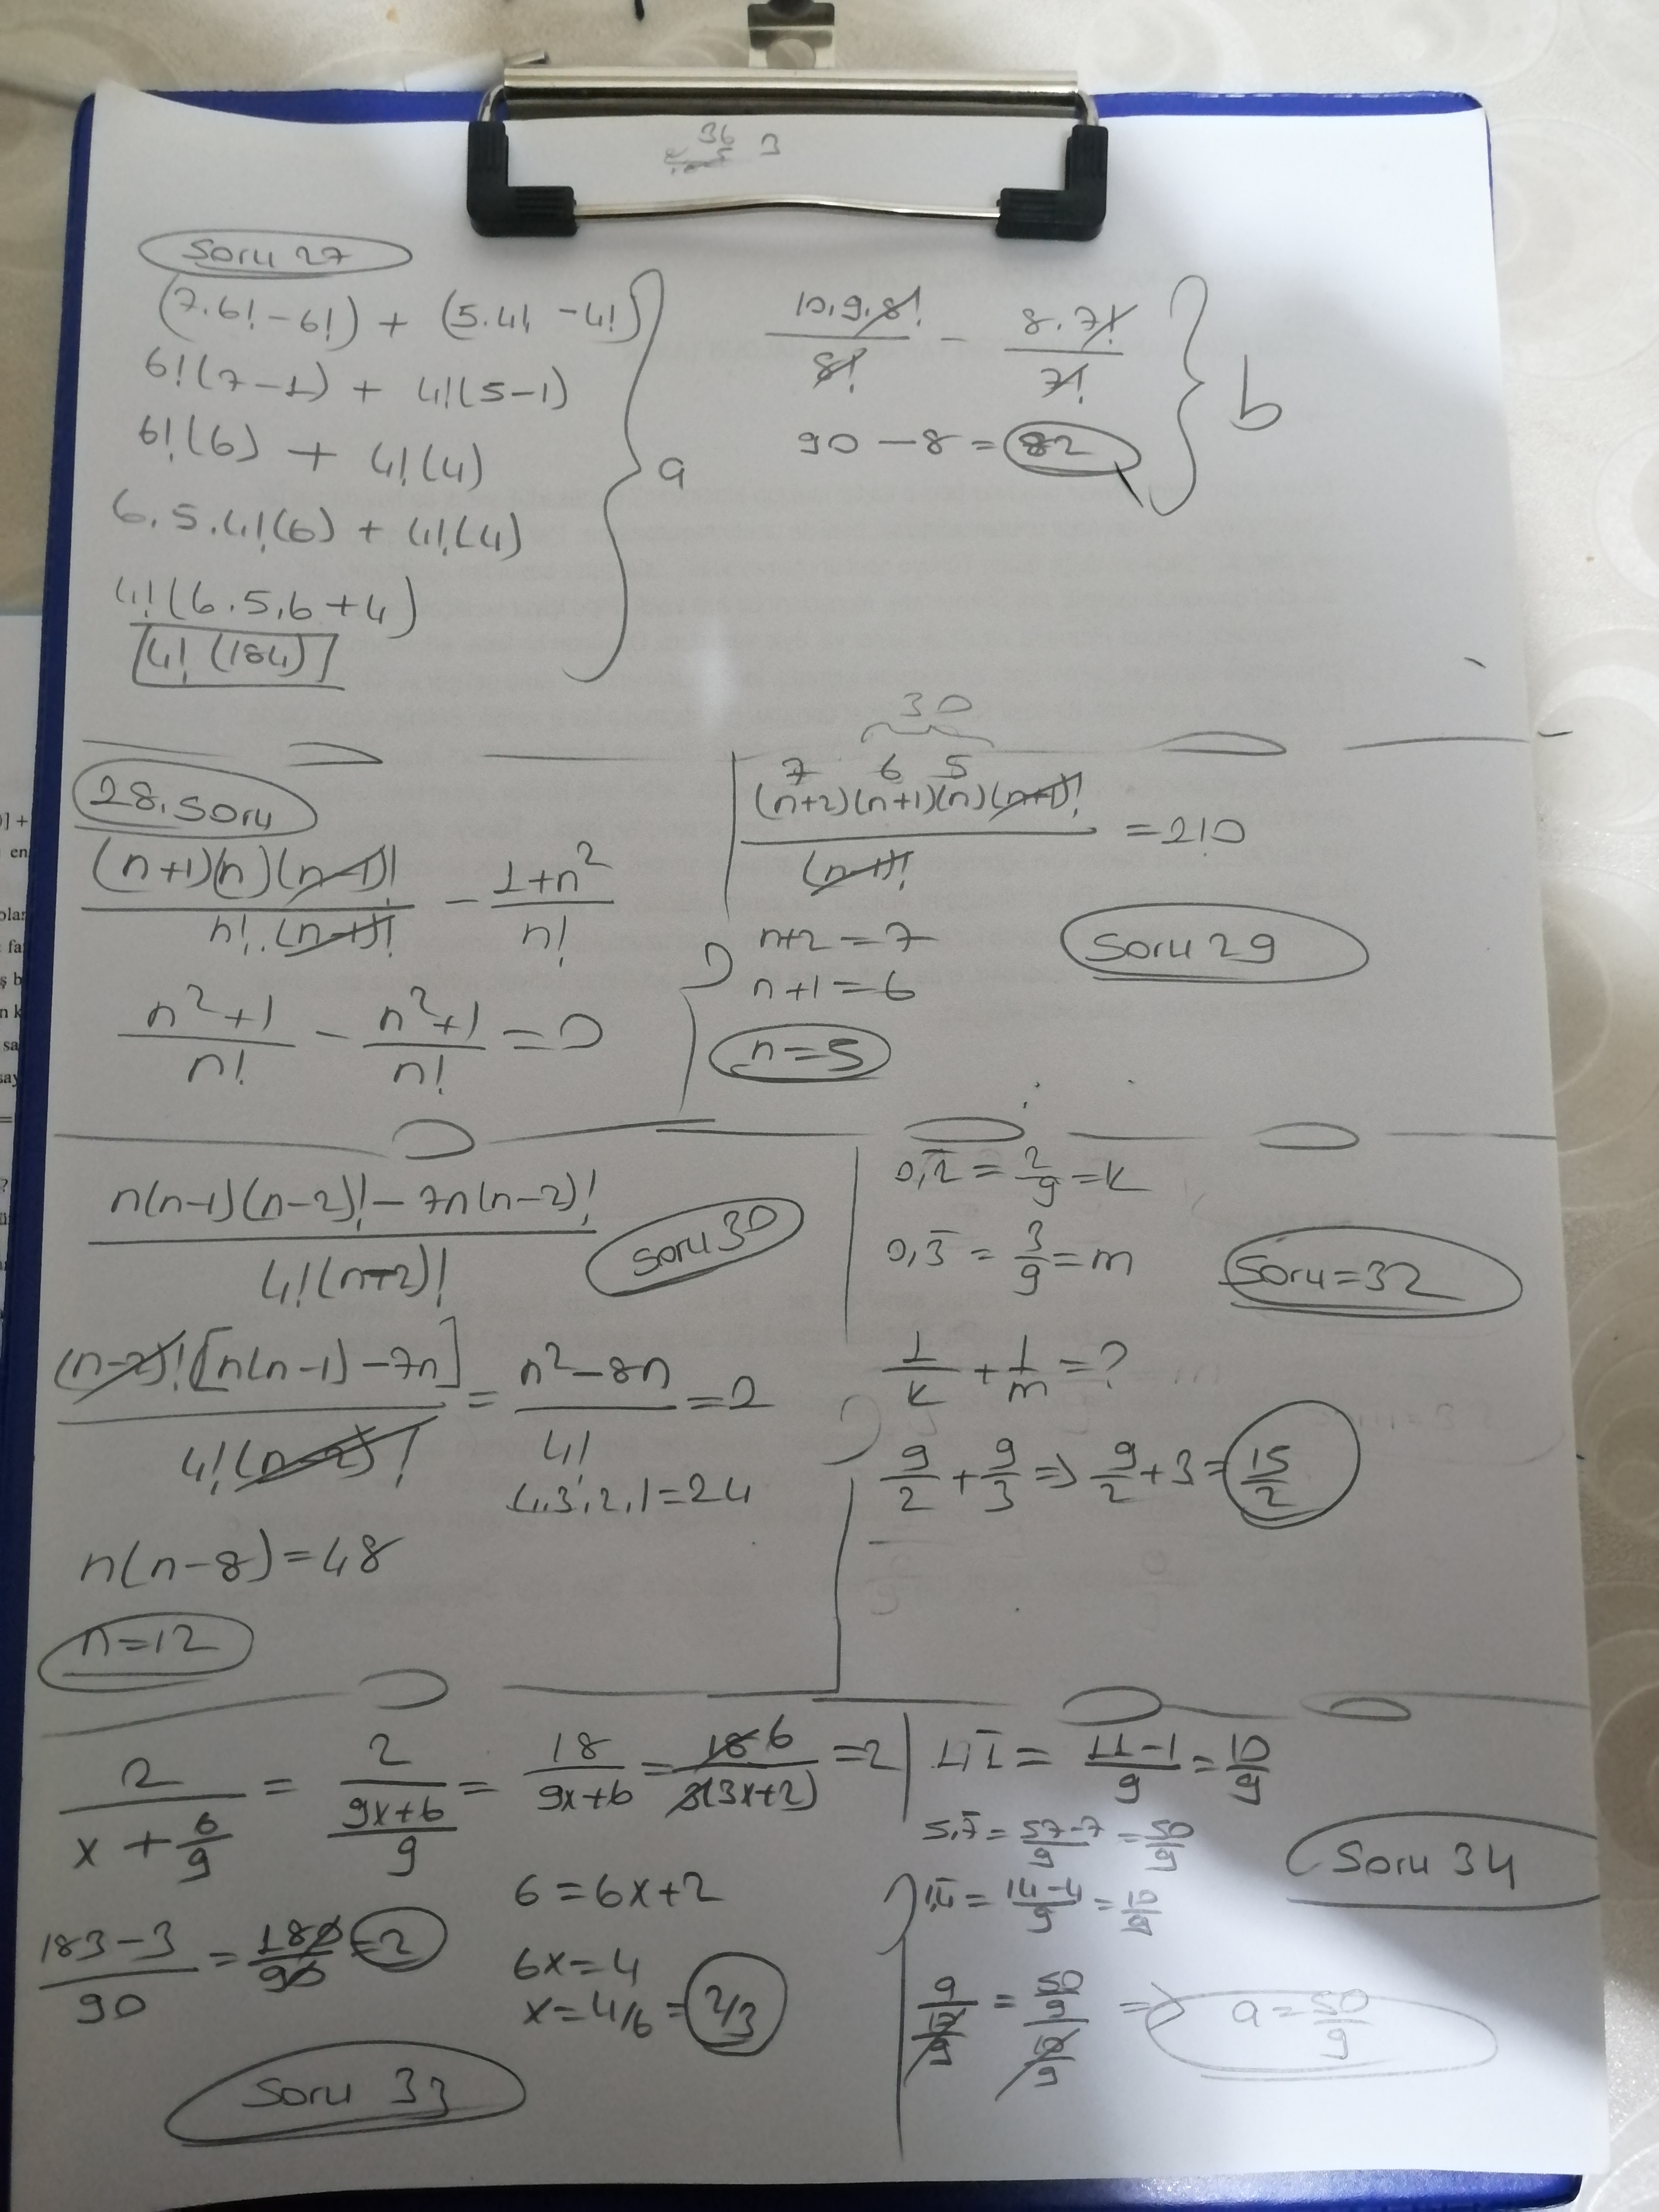 36 3
Soru 27
(7.6!-6!) + (5.4! -4!)
6!(7-1) + 4!(5-1)
6!(6) + 4!(4)
6.5.4!(6) + 4!(4)
4!(6.5.6+4)
4! (184)
a
10.9.8!/8! - 8.7!/7!
90-8=82
b
28.Soru
(n+1)(n)(n-1)!/n!.(n-1)! - 1+n²/n!
n²+1/n! - n²+1/n! =0
30
7 6 5
(n+2)(n+1)(n)(n-1)!/(n-1)! =210
n+2=7
n+1=6
n=5
Soru 29
n(n-1)(n-2)!-7n(n-2)!/4!(n-2)!
Soru 30
(n-2)![n(n-1)-7n]/4!(n-2)! = n²-8n/4! =2
4.3.2.1=24
n(n-8)=48
n=12
0,2̅ = 2/9 =k
0,3̅ = 3/9 =m
Soru=32
1/k + 1/m =?
9/2 + 9/3 => 9/2 +3= 15/2
2/x+6/9 = 2/9x+6/9 = 18/9x+6 = 18 6/3(3x+2) =2
6=6x+2
6x=4
x=4/6 = 2/3
183-3/90 = 180/90 =2
Soru 33
1,1̅ = 11-1/9 = 10/9
5,7̅ = 57-7/9 = 50/9
1,4̅ = 14-4/9 = 10/9
Soru 34
a = 50/9